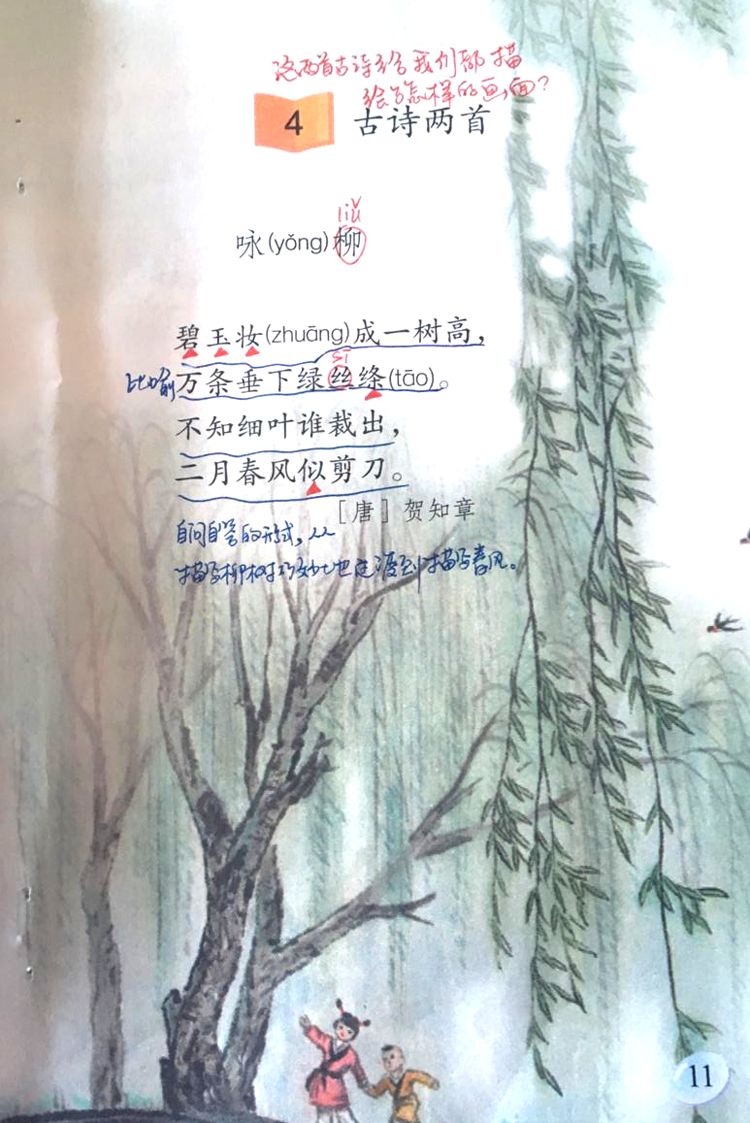 这两首古诗给我们都描
绘了怎样的画面?
4 古诗两首
liǔ
咏(yǒng)柳
碧玉妆(zhuāng)成一树高,
sī
比喻 万条垂下绿丝绦(tāo)。
不知细叶谁裁出,
二月春风似剪刀。
[唐] 贺知章
自问自答的形式,从
描写柳树巧妙地过渡到描写春风。
11